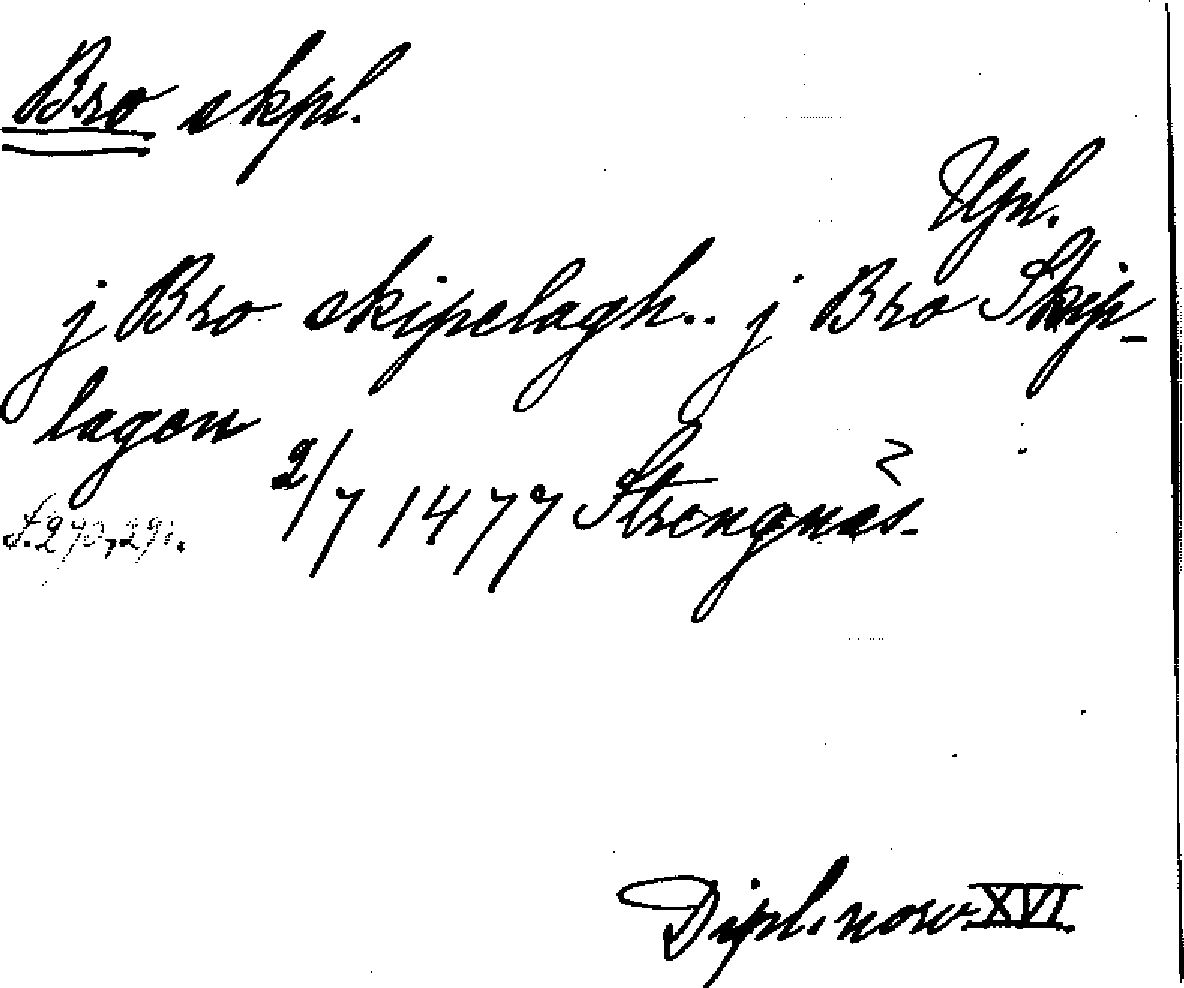 Bro skpl.
Upl.
j Bro skipelagh.. j Bro Skip-
lagen
2/7 1477 Strengnäs.
s. 290, 291.
Dipl. norv. XVI.